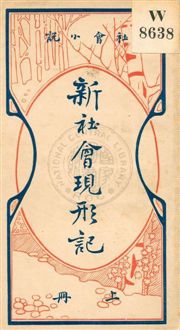 W
8638
社會小說
新社會現形記
NATIONAL CENTRAL LIBRARY
上冊